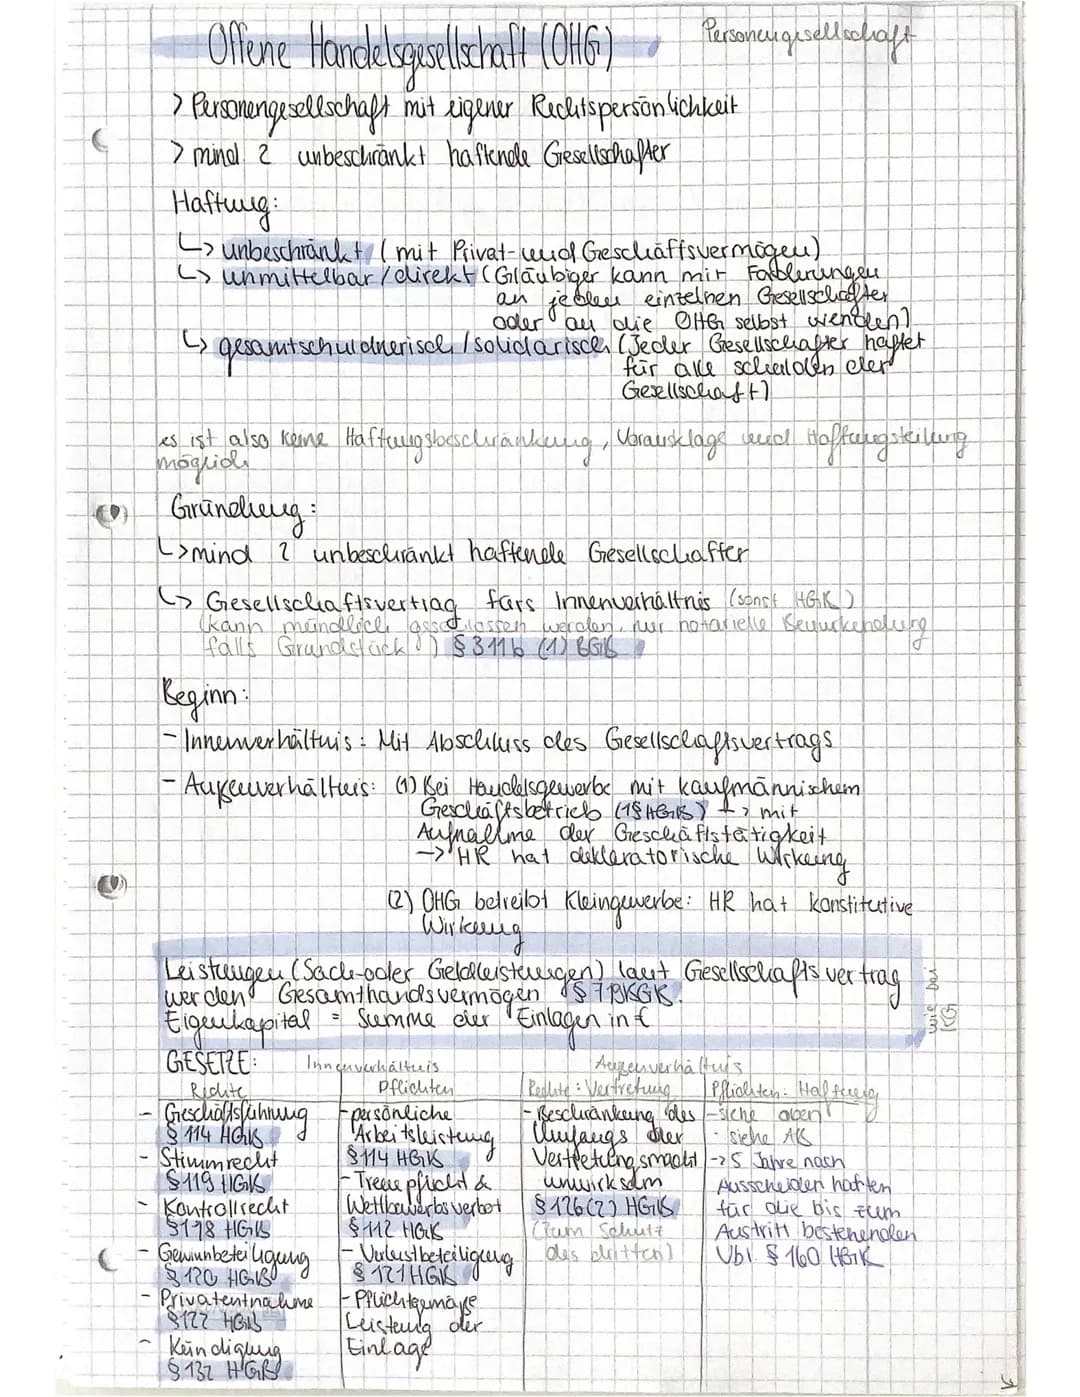 Offene Handelsgesellschaft (OHG)
Personengesellschaft
> Personengesellschaft mit eigener Rechtspersönlichkeit
> mind 2 unbeschränkt haftende Gesellschafter
Haftung:
↳ unbeschränkt (mit Privat- und Geschäftsvermögen)
↳ unmittelbar/direkt (Gläubiger kann mit Forderungen
an jeden einzelnen Gesellschafter
oder an die OHG selbst wenden)
↳ gesamtschuldnerisch/solidarisch (Jeder Gesellschafter haftet
für alle schulden der
Gesellschaft)
es ist also keine Haftungsbeschränkung, Vorausklage und Haftungsteilung
möglich
Gründung:
↳ mind 2 unbeschränkt haftende Gesellschafter
↳ Gesellschaftsvertrag fürs Innenverhältnis (sonst HGB)
(kann mündlich geschlossen werden, nur notarielle Beurkundung
falls Grundstück) § 311b (1) BGB
Beginn:
- Innenverhältnis: Mit Abschluss des Gesellschaftsvertrags
- Außenverhältnis: (1) Bei Handelsgewerbe mit kaufmännischem
Geschäftsbetrieb (1§ HGB) ↳ mit
Aufnahme der Geschäftstätigkeit
-> HR hat deklaratorische Wirkung
(2) OHG betreibt Kleingewerbe: HR hat konstitutive
Wirkung
Leistungen (Sach- oder Geldleistungen) laut Gesellschaftsvertrag
werden Gesamthandsvermögen § 718 BGB.
Eigenkapital = Summe der Einlagen in €
wie bei
KG
GESETZE: Innenverhältnis Außenverhältnis
Rechte Pflichten Rechte: Vertretung Pflichten: Haftung
- Geschäftsführung - persönliche - Beschränkung des - siehe oben
§ 114 HGB Arbeitsleistung Umfangs der - siehe AB
- Stimmrecht § 114 HGB Vertretungsmacht -> 5 Jahre nach
§ 119 HGB - Treuepflicht & unwirksam Ausscheiden haften
- Kontrollrecht Wettbewerbsverbot § 126(2) HGB für die bis zum
§ 118 HGB § 112 HGB (Zum Schutz Austritt bestehenden
- Gewinnbeteiligung - Verlustbeteiligung des dritten) Vbl. § 160 HGB
§ 120 HGB § 121 HGB
- Privatentnahme - Pflichtgemäße
§ 122 HGB Leistung der
- Kündigung Einlage
§ 132 HGB